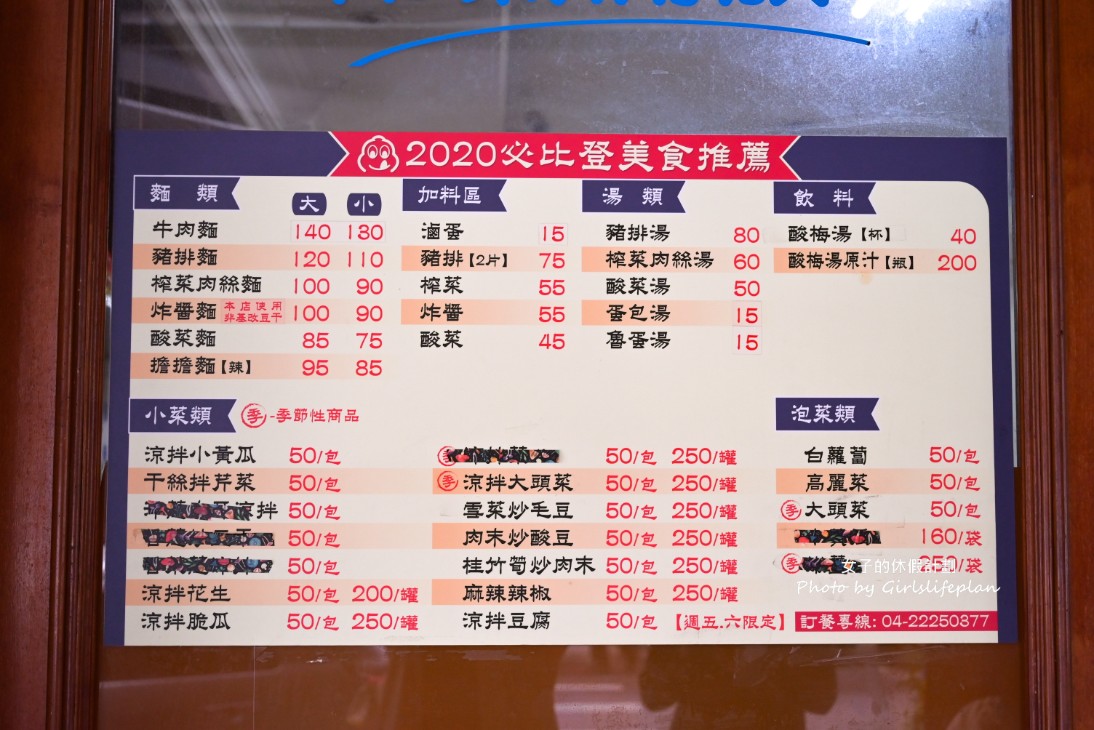 2020必比登美食推薦
麵 類 大 小
牛肉麵 140 130
豬排麵 120 110
榨菜肉絲麵 100 90
炸醬麵 本店使用非基改豆干 100 90
酸菜麵 85 75
擔擔麵【辣】 95 85
加料區
滷蛋 15
豬排【2片】 75
榨菜 55
炸醬 55
酸菜 45
湯 類
豬排湯 80
榨菜肉絲湯 60
酸菜湯 50
蛋包湯 15
魯蛋湯 15
飲 料
酸梅湯【杯】 40
酸梅湯原汁【瓶】 200
小菜類 季-季節性商品
涼拌小黃瓜 50/包
干絲拌芹菜 50/包
涼拌 50/包
50/包
50/包
涼拌花生 50/包 200/罐
涼拌脆瓜 50/包 250/罐
季 50/包 250/罐
季 涼拌大頭菜 50/包 250/罐
雪菜炒毛豆 50/包 250/罐
肉末炒酸豆 50/包 250/罐
桂竹筍炒肉末 50/包 250/罐
麻辣辣椒 50/包 250/罐
涼拌豆腐 50/包 【週五.六限定】
泡菜類
白蘿蔔 50/包
高麗菜 50/包
季 大頭菜 50/包
160/袋
季 250/袋
女子的休假計劃
Photo by Girlslifeplan
訂餐專線: 04-22250377